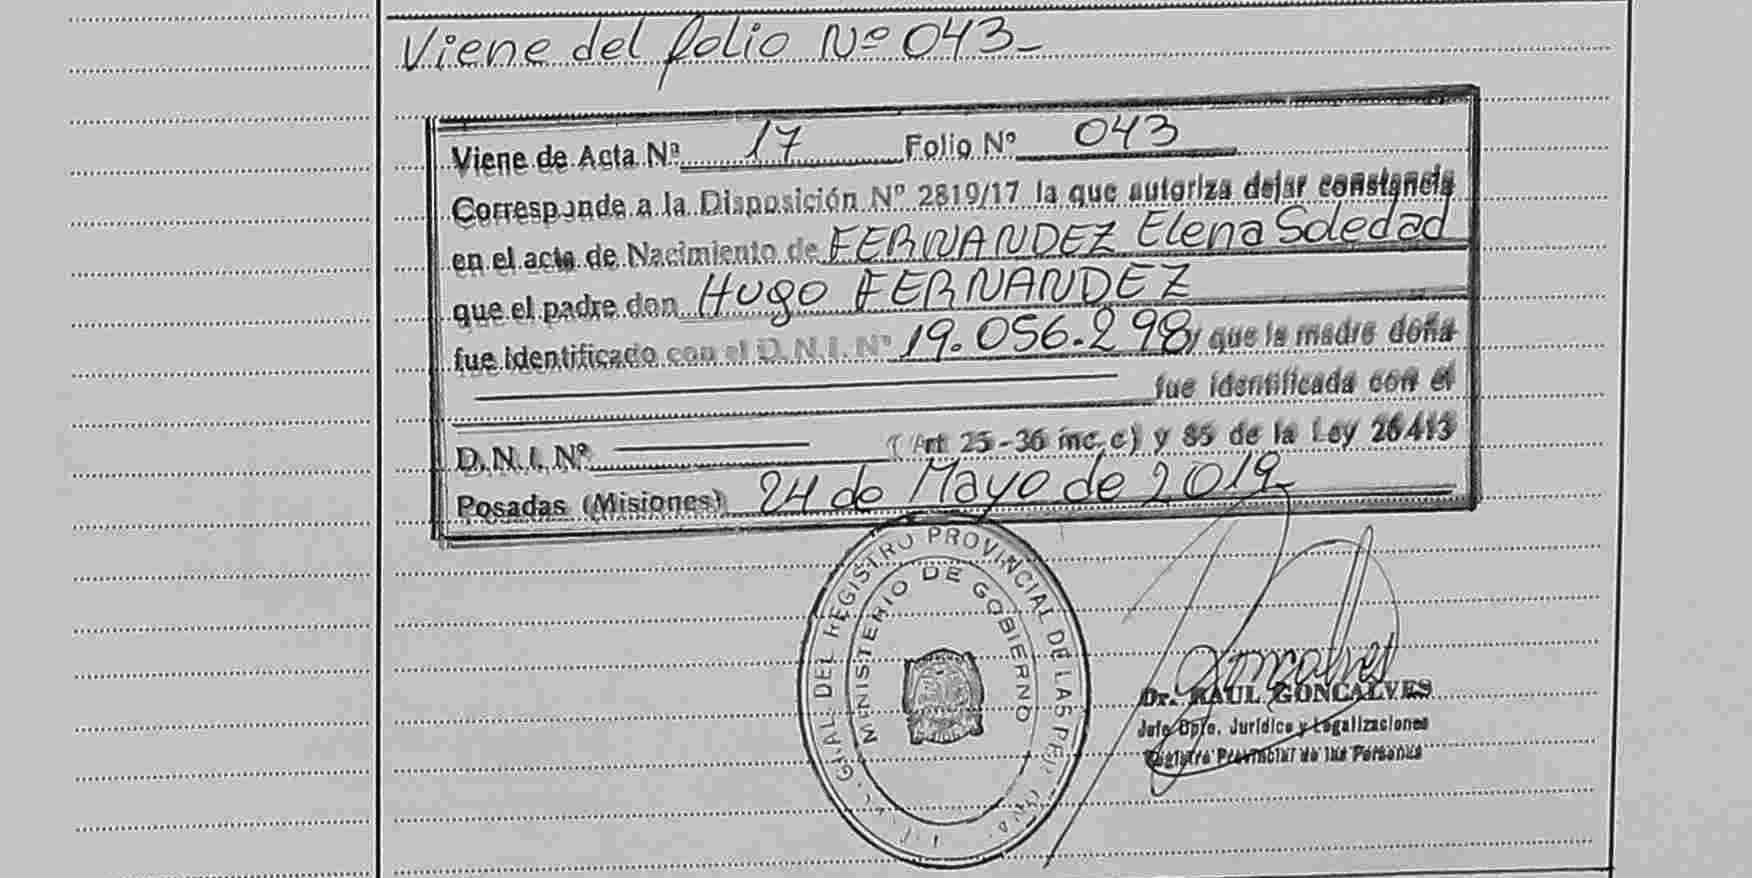 Viene del folio Nº 043-
Viene de Acta Nª 17 Folio Nº 043
Corresponde a la Disposición Nº 2819/17 la que autoriza dejar constancia
en el acta de Nacimiento de FERNANDEZ Elena Soledad
que el padre don Hugo FERNANDEZ
fue identificado con el D.N.I. Nº 19.056.298 y que la madre doña
fue identificada con el
D.N.I. Nº (Art 25-36 inc. c) y 85 de la Ley 26413
Posadas (Misiones) 24 de Mayo de 2019-
GRAL. DEL REGISTRO PROVINCIAL DE LAS
MINISTERIO DE GOBIERNO
Dr. RAUL GONCALVES
Jefe Dpto. Jurídico y Legalizaciones
Registro Provincial de las Personas